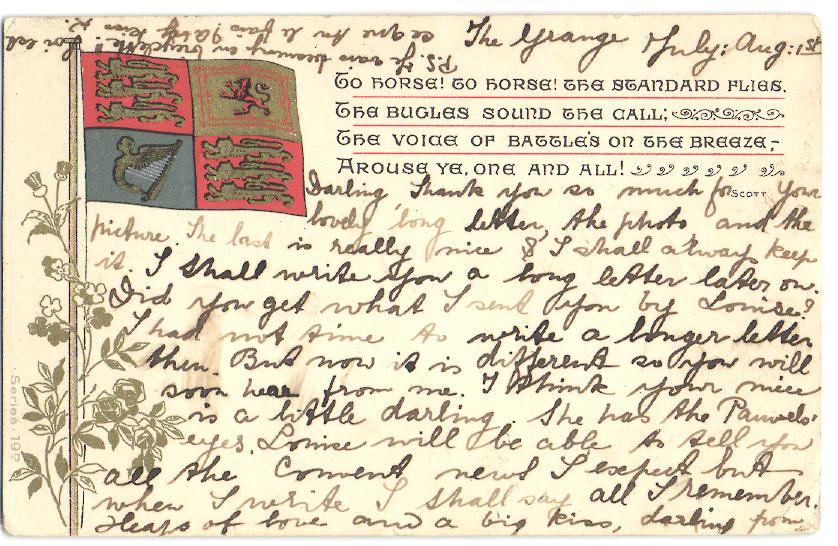 The Grange July: Aug: 1st
To horse! To horse! The standard flies,
The bugles sound the call;
The voice of battle's on the breeze,-
Arouse ye, one and all!
Scott
Darling Thank you so much for your
lovely long letter, the photo and the
picture. The last is really nice & I shall always keep
it. I shall write you a long letter later on.
Did you get what I sent you by Louise?
I had not time to write a longer letter
then. But now it is different so you will
soon hear from me. I think your niece
is a little darling. She has the Pauwels'
eyes. Louise will be able to tell you
all the Convent news I expect but
when I write I shall say all I remember.
Heaps of love and a big kiss, darling from
P.S. Je vais
ce que tu le fais
bicyclette!
Series 199